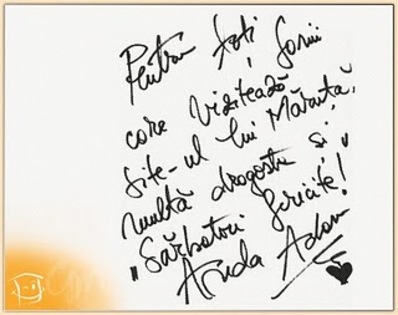 Pentru toți fanii
care vizitează
site-ul lui Măruță,
multă dragoste și
"Sărbători fericite!
Anda Adam